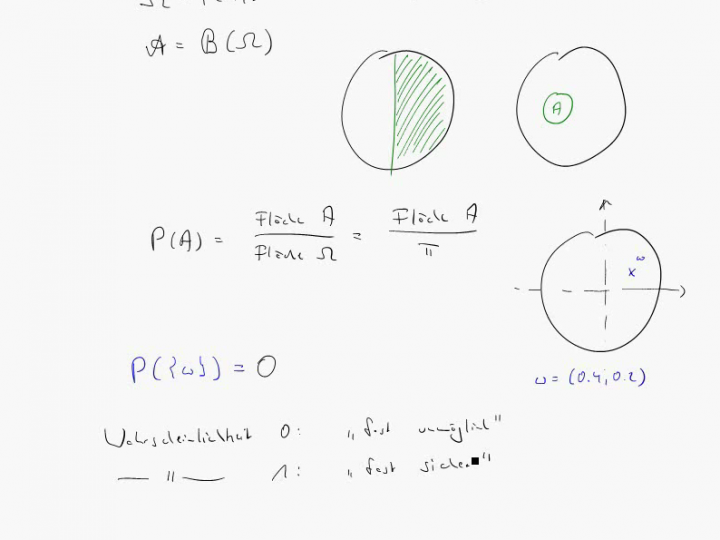 𝒜 = B(Ω)
A
P(A) = Fläche A / Fläche Ω = Fläche A / π
ω
x
P({ω}) = 0
ω = (0.4, 0.2)
Wahrscheinlichkeit 0: „fast unmöglich"
— " — 1: „fast sicher"